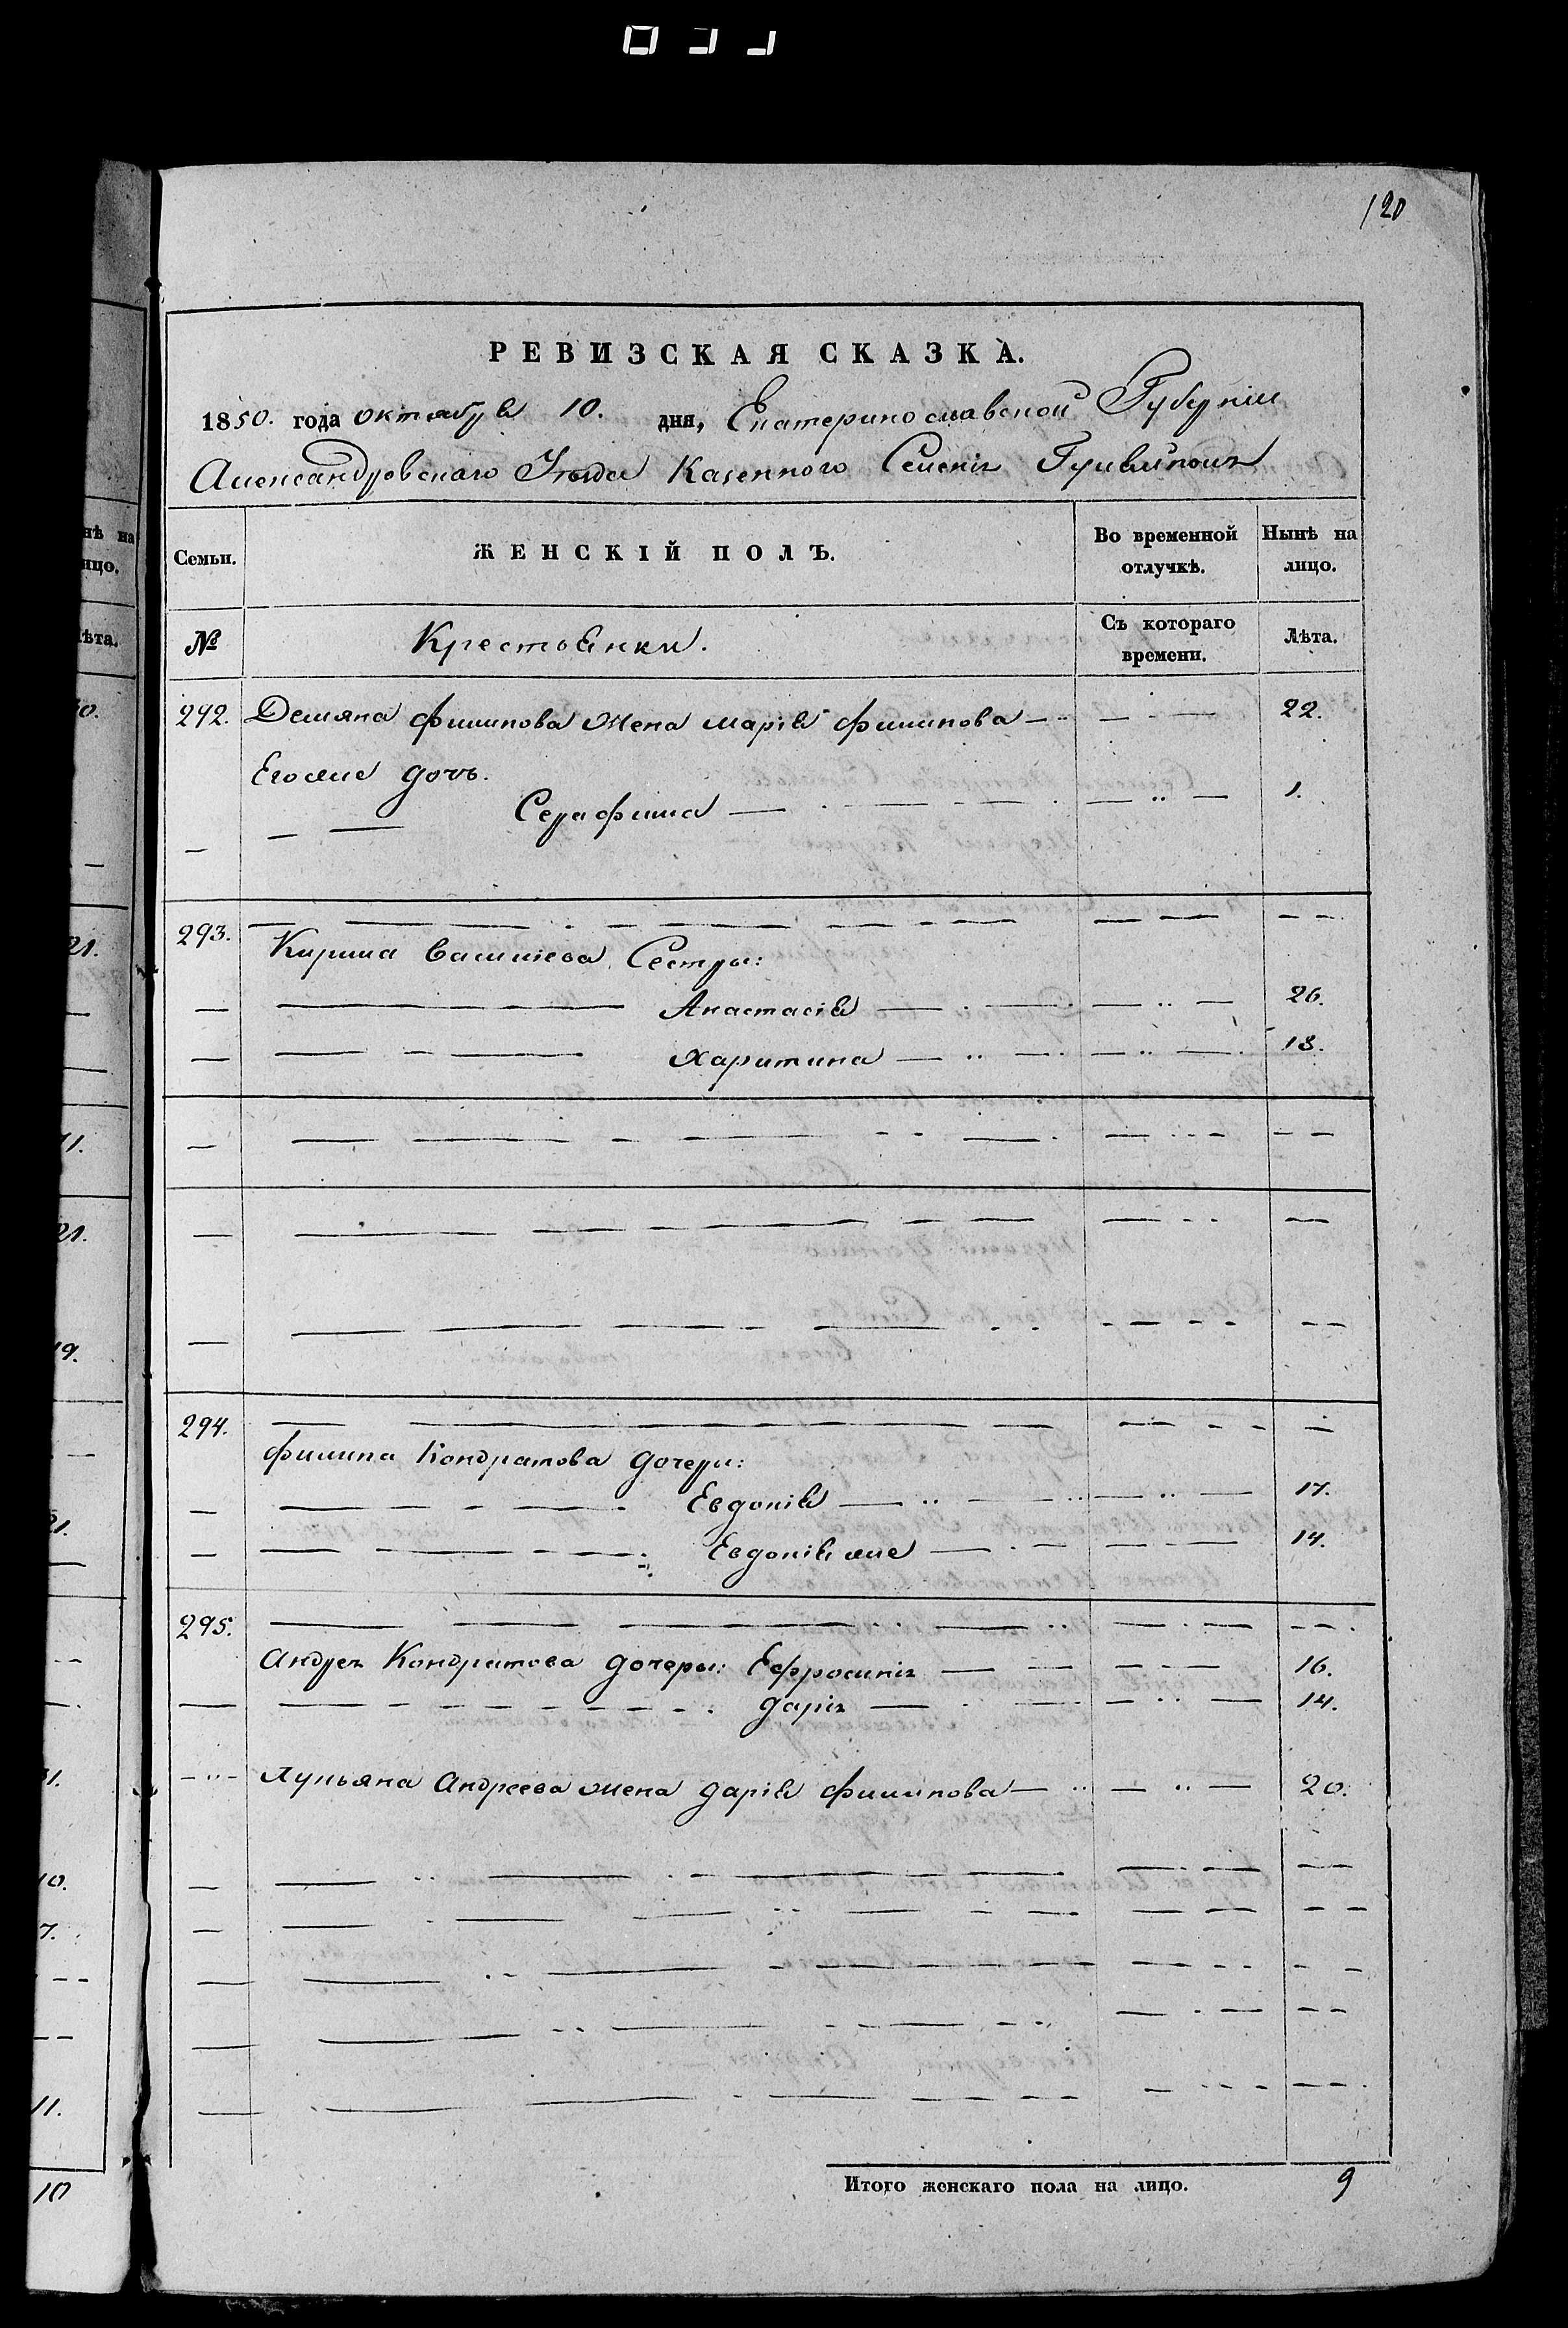 120
РЕВИЗСКАЯ СКАЗКА.
1850. года октября 10. дня, Екатеринославской Губернии
Александровскаго Уезда Казенного Селения Гуляйполя
Семьи. ЖЕНСКІЙ ПОЛЪ. Во временной отлучкѣ. Нынѣ на лицо.
№ Крестьянки. Съ котораго времени. Лѣта.
292. Демяна филипова жена марія филипова — 22.
Егоже дочь.
Серафима — 1.
293.
Кирила василиева Сестры:
Анастасія — 26.
Харитина — 18.
294.
филипа Кондратова дочери:
Евдокія — 17.
Евдокія же — 14.
295.
андрея Кондратова дочеры: Ефросинія — 16.
дарія — 14.
Лукьяна андреева жена дарія филипова — 20.
Итого женскаго пола на лицо. 9
нѣ на
ицо.
ѣта.
21.
21.
19.
21.
10.
7.
11.
10